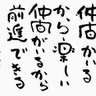 仲間がいる
から楽しい
仲間がいるから
前進できる